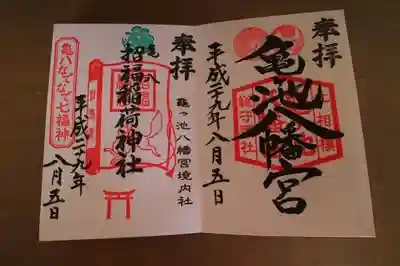 奉拝
亀池八幡宮
平成二十九年八月五日
奉拝
亀ヶ池八幡宮境内社
亀八
招福稲荷神社
平成二十九年
八月五日
亀八なでなで七福神